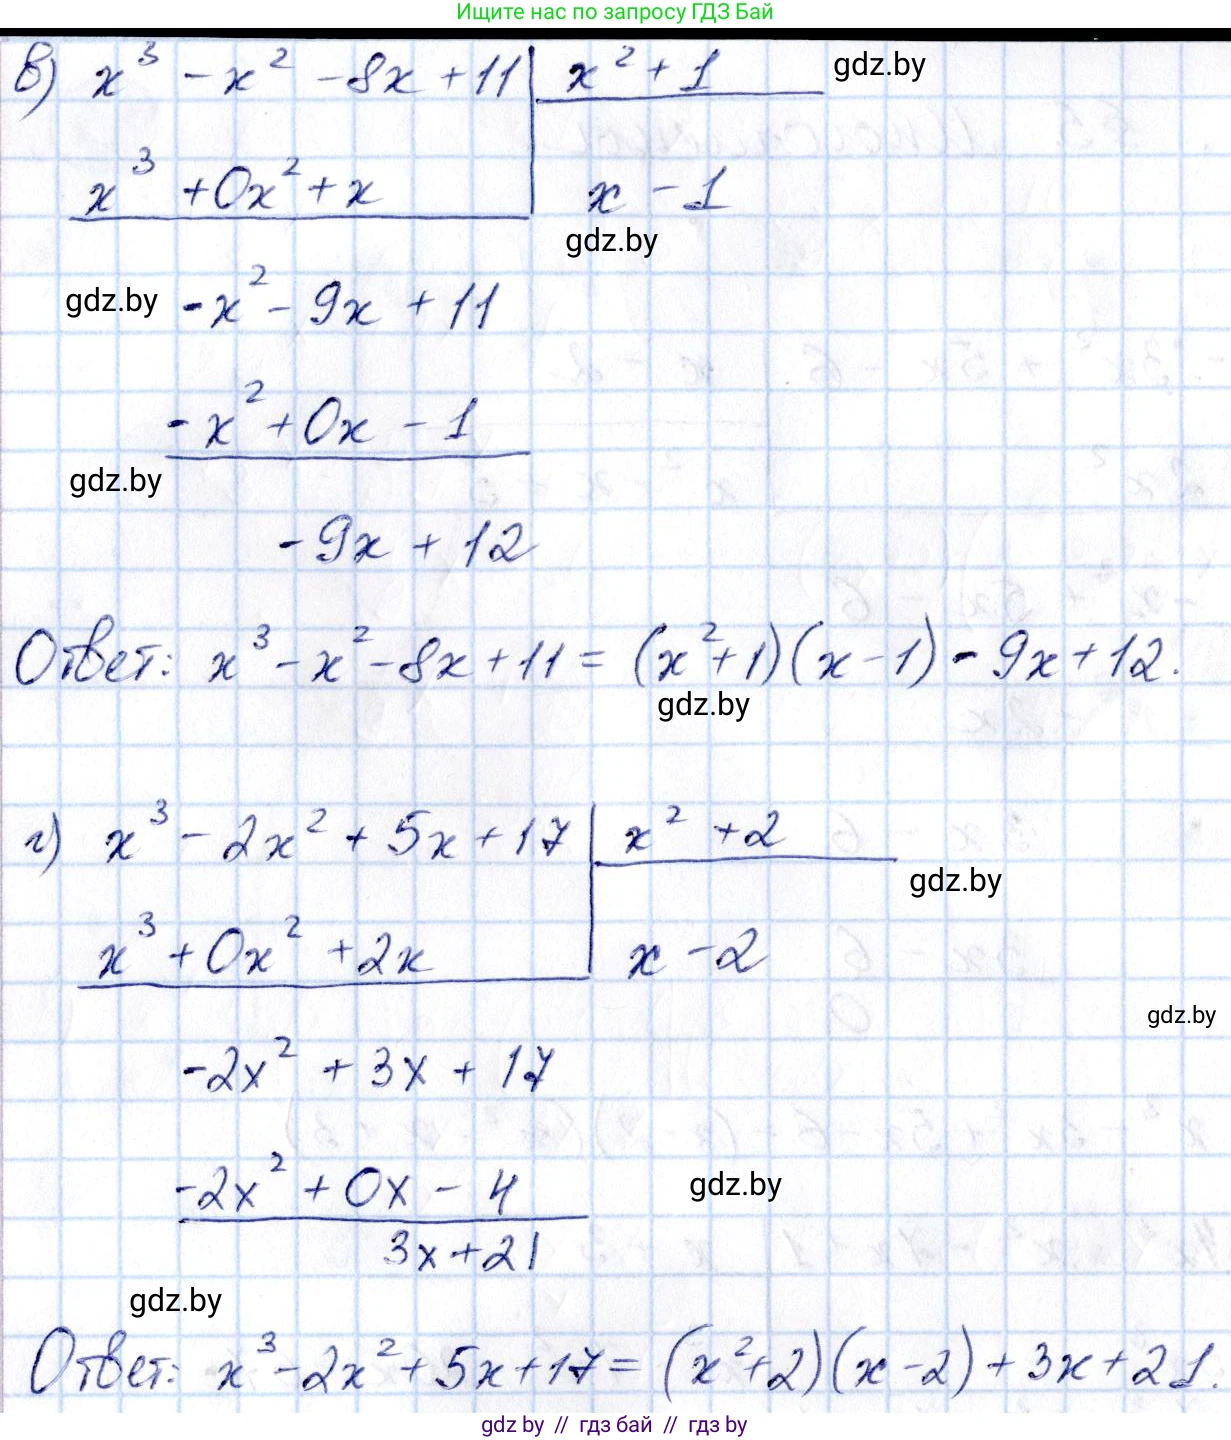 Ищите нас по запросу ГДЗ Бай
в) x³ - x² - 8x + 11 | x² + 1 gdz.by
x³ + 0x² + x x - 1
gdz.by
gdz.by -x² - 9x + 11
-x² + 0x - 1
gdz.by
-9x + 12
Ответ: x³ - x² - 8x + 11 = (x² + 1)(x - 1) - 9x + 12.
gdz.by
г) x³ - 2x² + 5x + 17 | x² + 2
gdz.by
x³ + 0x² + 2x x - 2
gdz.by
-2x² + 3x + 17
-2x² + 0x - 4 gdz.by
3x + 21
gdz.by
Ответ: x³ - 2x² + 5x + 17 = (x² + 2)(x - 2) + 3x + 21.
gdz.by // гдз бай // гдз by